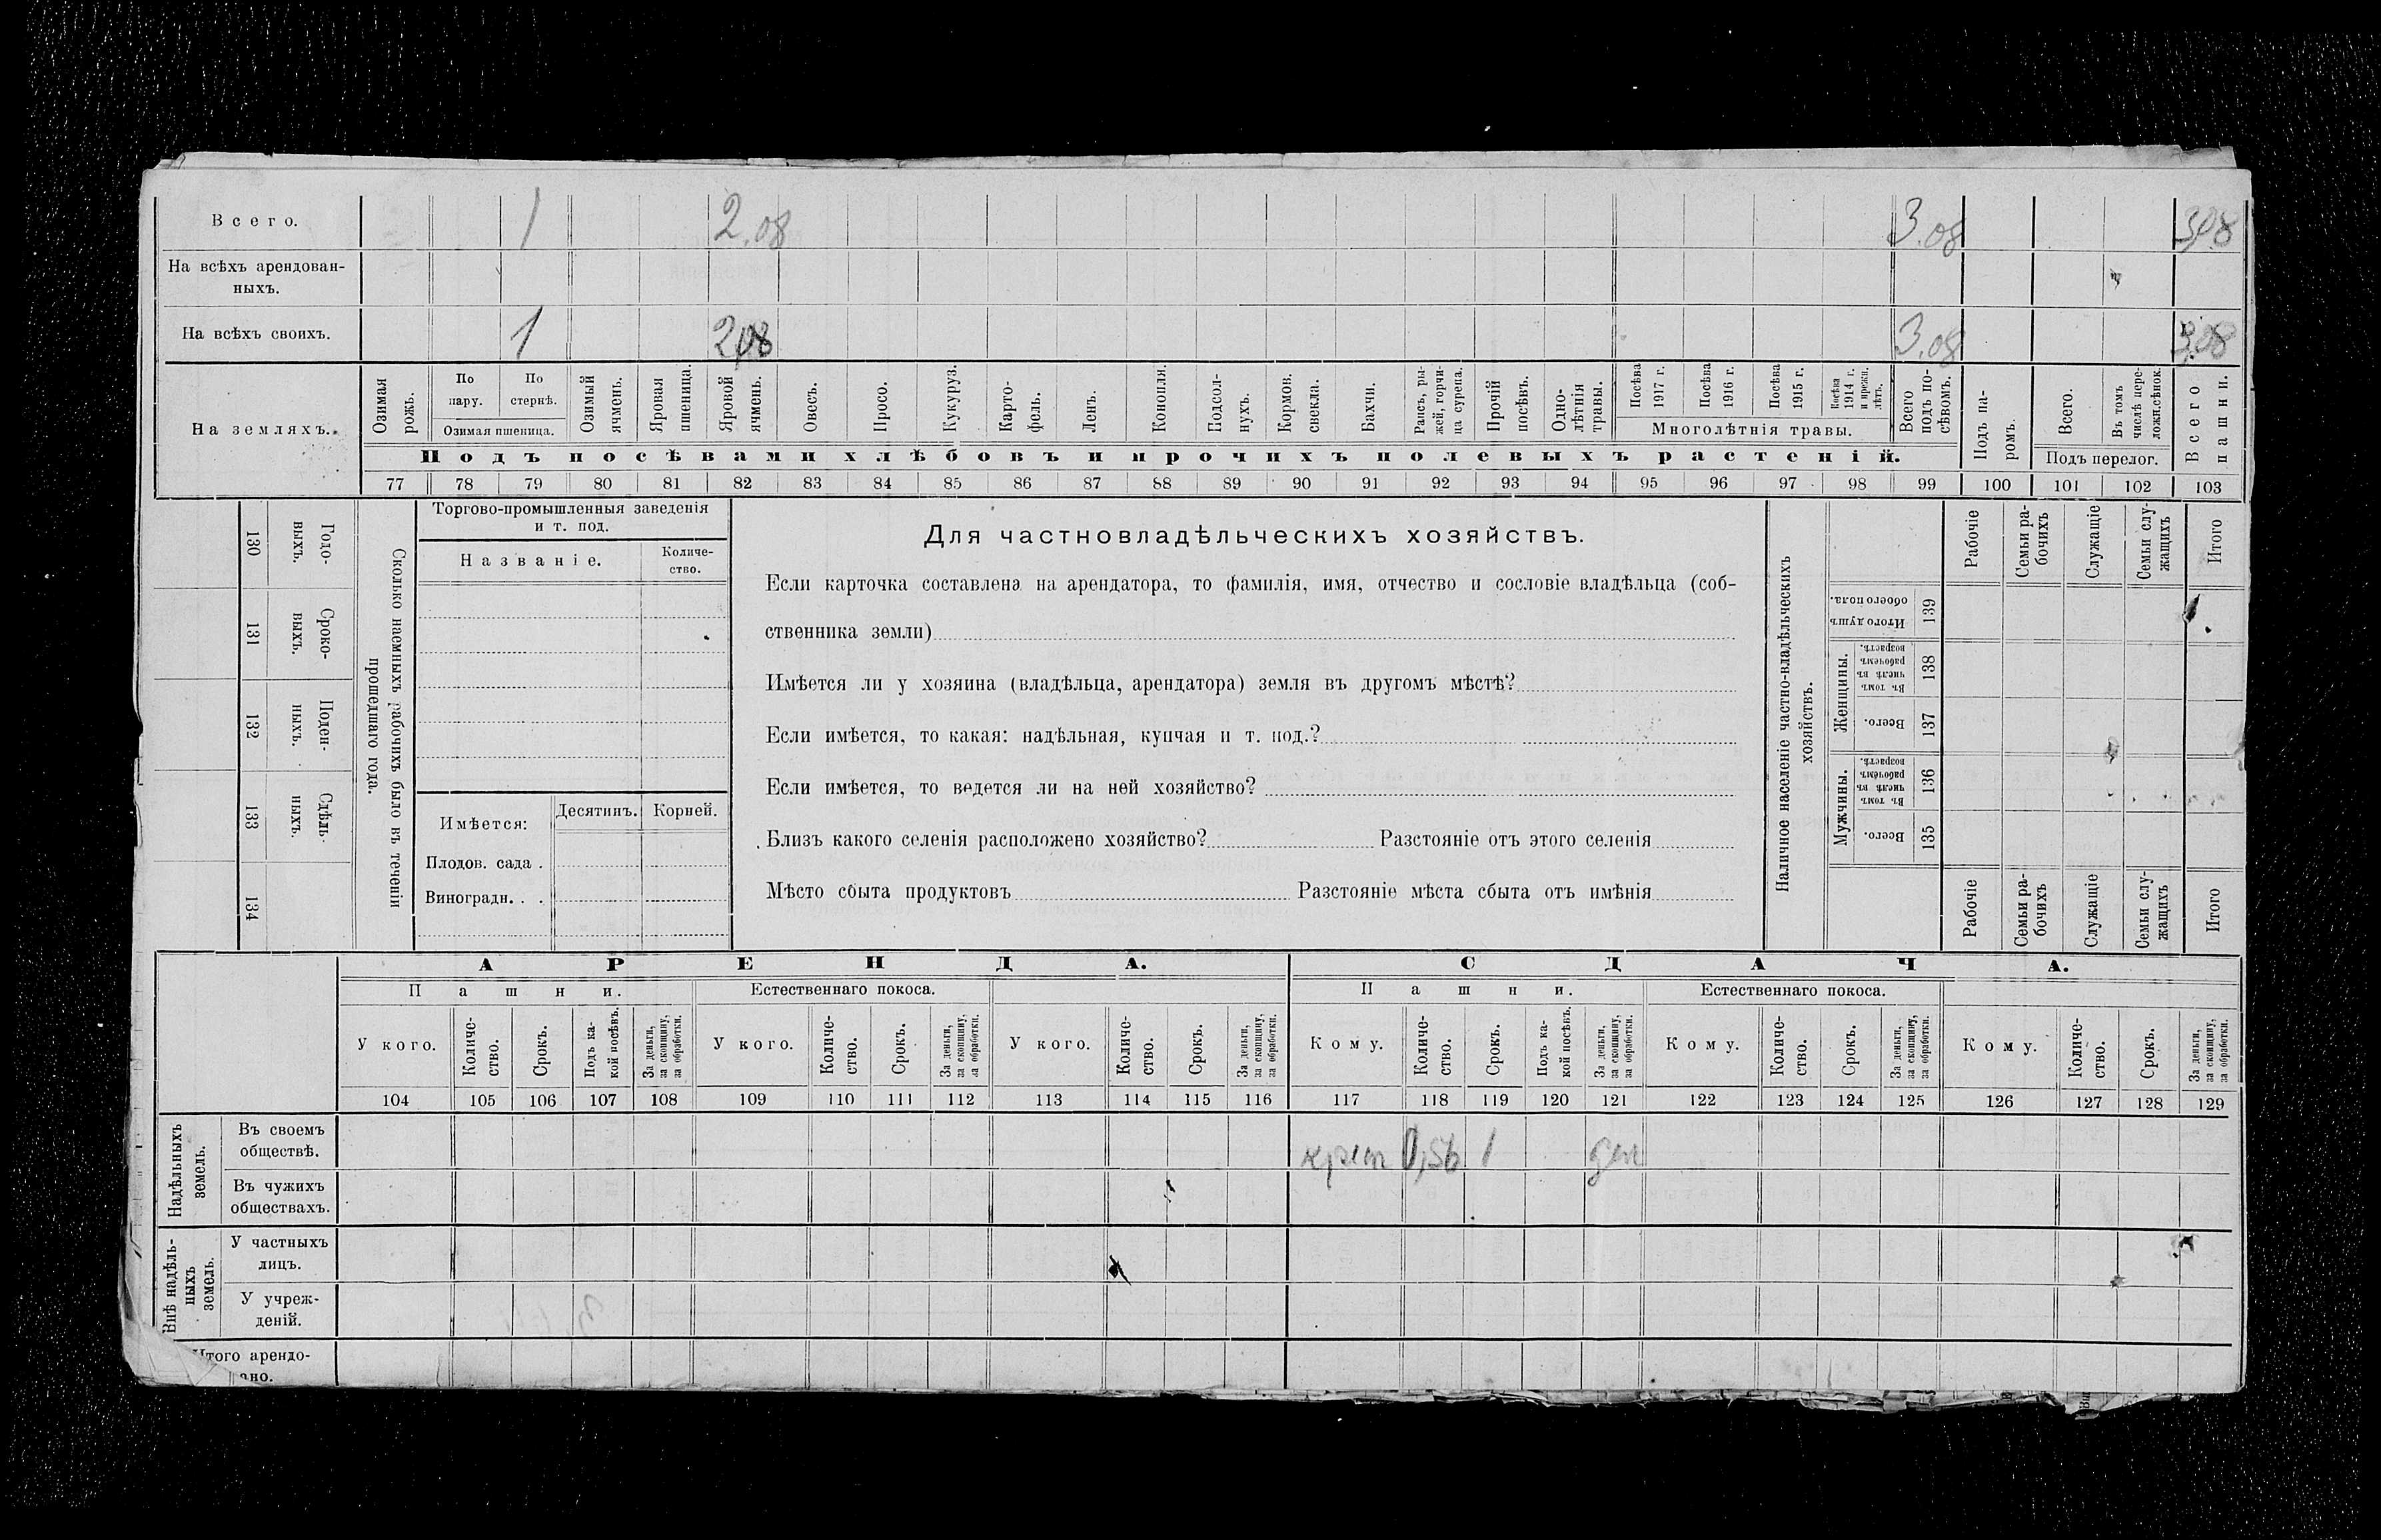 Всего. 1 2.08 3.08 3,08
На всѣхъ арендован-
ныхъ.
На всѣхъ своихъ. 1 2,08 3.08 3.08
На земляхъ.
Озимая рожь.
По пару.
По стернѣ.
Озимая пшеница.
Озимый ячмень.
Яровая пшеница.
Яровой ячмень.
Овесъ.
Просо.
Кукуруз.
Карто-
фель.
Ленъ.
Конопля.
Подсол-
нухъ.
Кормов.
свекла.
Бахчи.
Рапсъ, ры-
жей, горчи-
ца сурепа.
Прочій
посѣвъ.
Одно-
лѣтнія
травы.
Посѣва
1917 г.
Посѣва
1916 г.
Посѣва
1915 г.
Посѣва
1914 г.
и прежн.
лѣтъ.
Многолѣтнія травы.
Всего
подъ по-
сѣвомъ.
Подъ па-
ромъ.
Всего.
Въ томъ
числѣ пере-
ложн.сѣнок.
Подъ перелог.
Всего
пашни.
Подъ посѣвами хлѣбовъ и прочихъ полевыхъ растеній.
77 78 79 80 81 82 83 84 85 86 87 88 89 90 91 92 93 94 95 96 97 98 99 100 101 102 103
130
Годо-
выхъ.
131
Сроко-
выхъ.
132
Поден-
ныхъ.
133
Сдѣль-
ныхъ.
134
Сколько наемныхъ рабочихъ было въ теченіи
прошедшаго года.
Торгово-промышленныя заведенія
и т. под.
Названіе.
Количе-
ство.
Имѣется:
Десятинъ.
Корней.
Плодов. сада .
Виноградн. . .
Для частновладѣльческихъ хозяйствъ.
Если карточка составлена на арендатора, то фамилія, имя, отчество и сословіе владѣльца (соб-
ственника земли)
Имѣется ли у хозяина (владѣльца, арендатора) земля въ другомъ мѣстѣ?
Если имѣется, то какая: надѣльная, купчая и т. под.?
Если имѣется, то ведется ли на ней хозяйство?
Близъ какого селенія расположено хозяйство? Разстояніе отъ этого селенія
Мѣсто сбыта продуктовъ Разстояніе мѣста сбыта отъ имѣнія
Наличное населеніе частно-владѣльческихъ
хозяйствъ.
Рабочіе
Семьи ра-
бочихъ
Служащіе
Семьи слу-
жащихъ
Итого
Итого душъ
обоего пола.
139
Женщины.
Въ томъ
числѣ въ
рабочемъ
возрастѣ.
138
Всего.
137
Мужчины.
Въ томъ
числѣ въ
рабочемъ
возрастѣ.
136
Всего.
135
Рабочіе
Семьи ра-
бочихъ
Служащіе
Семьи слу-
жащихъ
Итого
АРЕНДА. СДАЧА.
Пашни. Естественнаго покоса. Пашни. Естественнаго покоса.
У кого.
Количе-
ство.
Срокъ.
Подъ ка-
кой посѣвъ.
За деньги,
за скопщину,
за обработки.
У кого.
Количе-
ство.
Срокъ.
За деньги,
за скопщину,
за обработки.
У кого.
Количе-
ство.
Срокъ.
За деньги,
за скопщину,
за обработки.
Кому.
Количе-
ство.
Срокъ.
Подъ ка-
кой посѣвъ.
За деньги,
за скопщину,
за обработки.
Кому.
Количе-
ство.
Срокъ.
За деньги,
за скопщину,
за обработки.
Кому.
Количе-
ство.
Срокъ.
За деньги,
за скопщину,
за обработки.
104 105 106 107 108 109 110 111 112 113 114 115 116 117 118 119 120 121 122 123 124 125 126 127 128 129
Надѣльныхъ
земель.
Въ своемъ
обществѣ.
0,56 1 ден
Въ чужихъ
обществахъ.
Внѣ надѣль-
ныхъ
земель.
У частныхъ
лицъ.
У учреж-
деній.
Итого арендо-
ано.